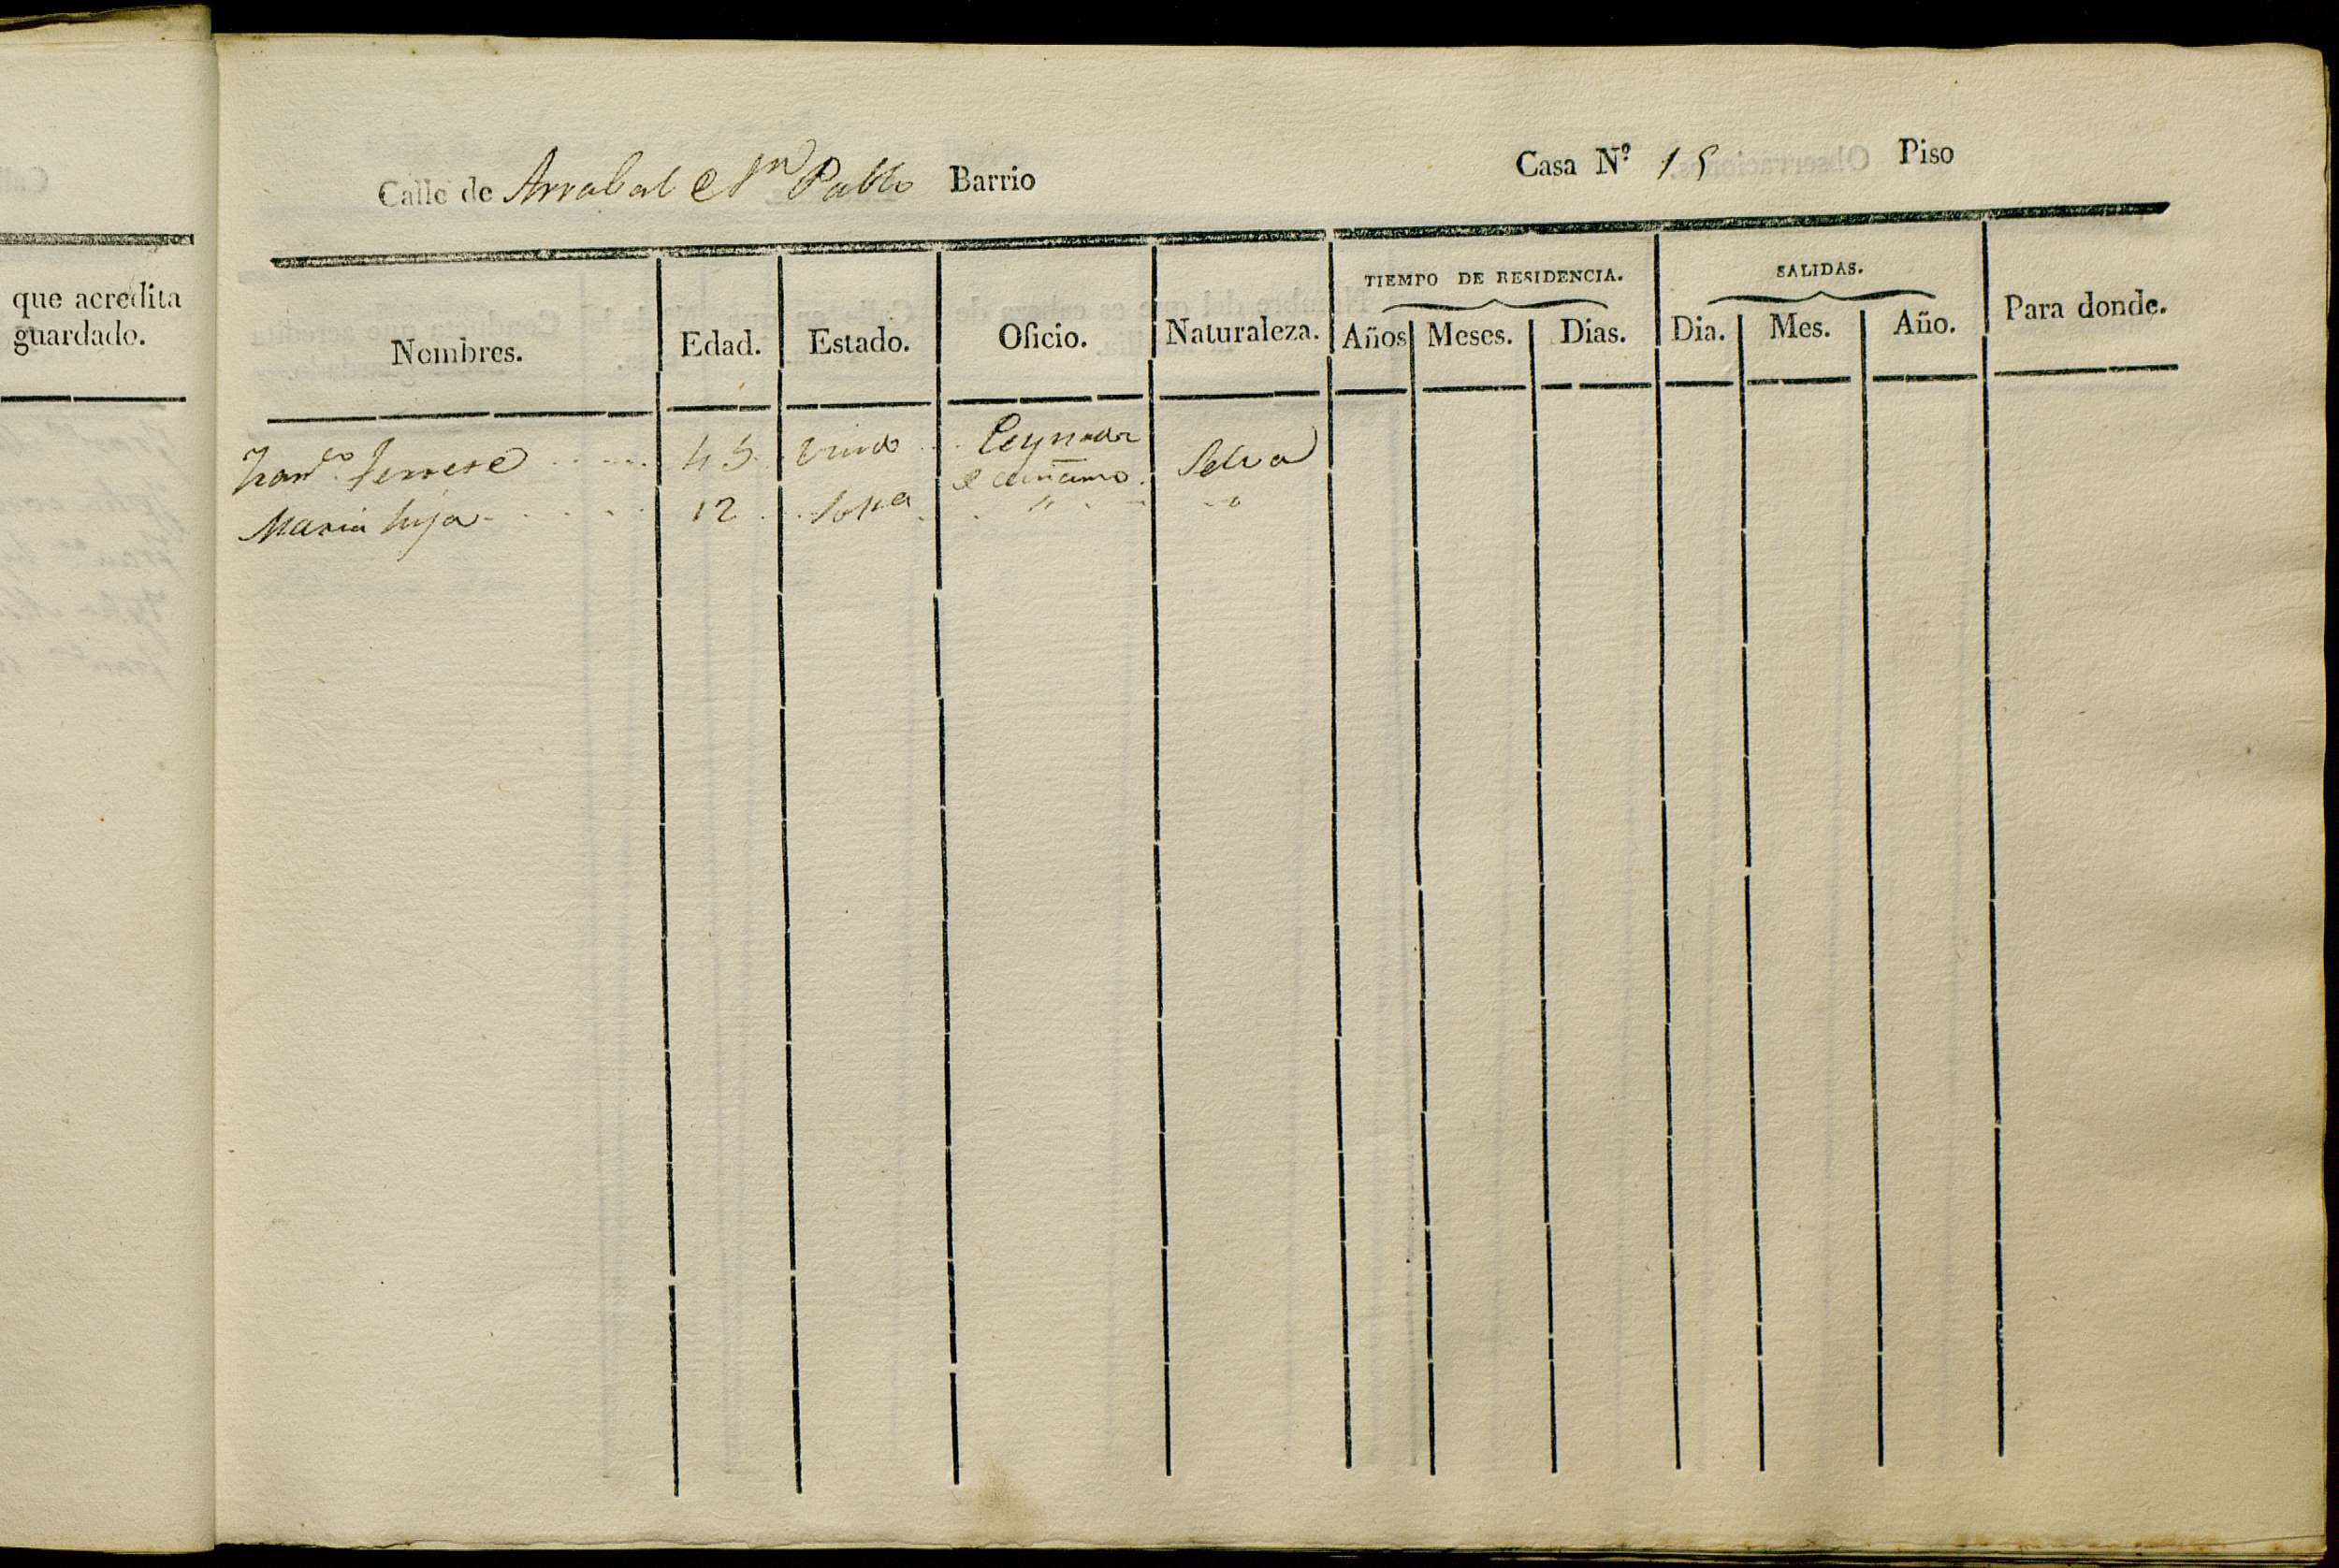 que acredita
guardado.
Calle de Arrabal e Sn Pablo Barrio Casa Nº 15 Piso
Nombres. Edad. Estado. Oficio. Naturaleza. TIEMPO DE RESIDENCIA. Años Meses. Dias. SALIDAS. Dia. Mes. Año. Para donde.
Franco 45 viudo Peynador Selva
e cañamo.
Maria hija 12 " "